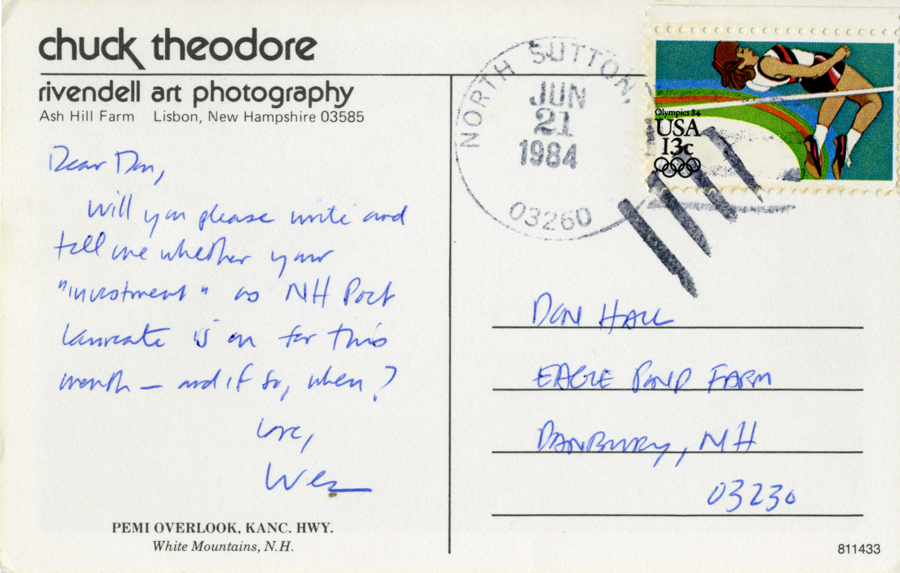 chuck theodore
rivendell art photography
Ash Hill Farm Lisbon, New Hampshire 03585
Dear Don,
Will you please write and
tell me whether your
"investment" as NH Poet
Laureate is on for this
month — and if so, when?
Love,
Wes
PEMI OVERLOOK, KANC. HWY.
White Mountains, N.H.
NORTH SUTTON,
JUN
21
1984
03260
Olympics 84
USA
13c
DON HALL
EAGLE POND FARM
DANBURY, NH
03230
811433